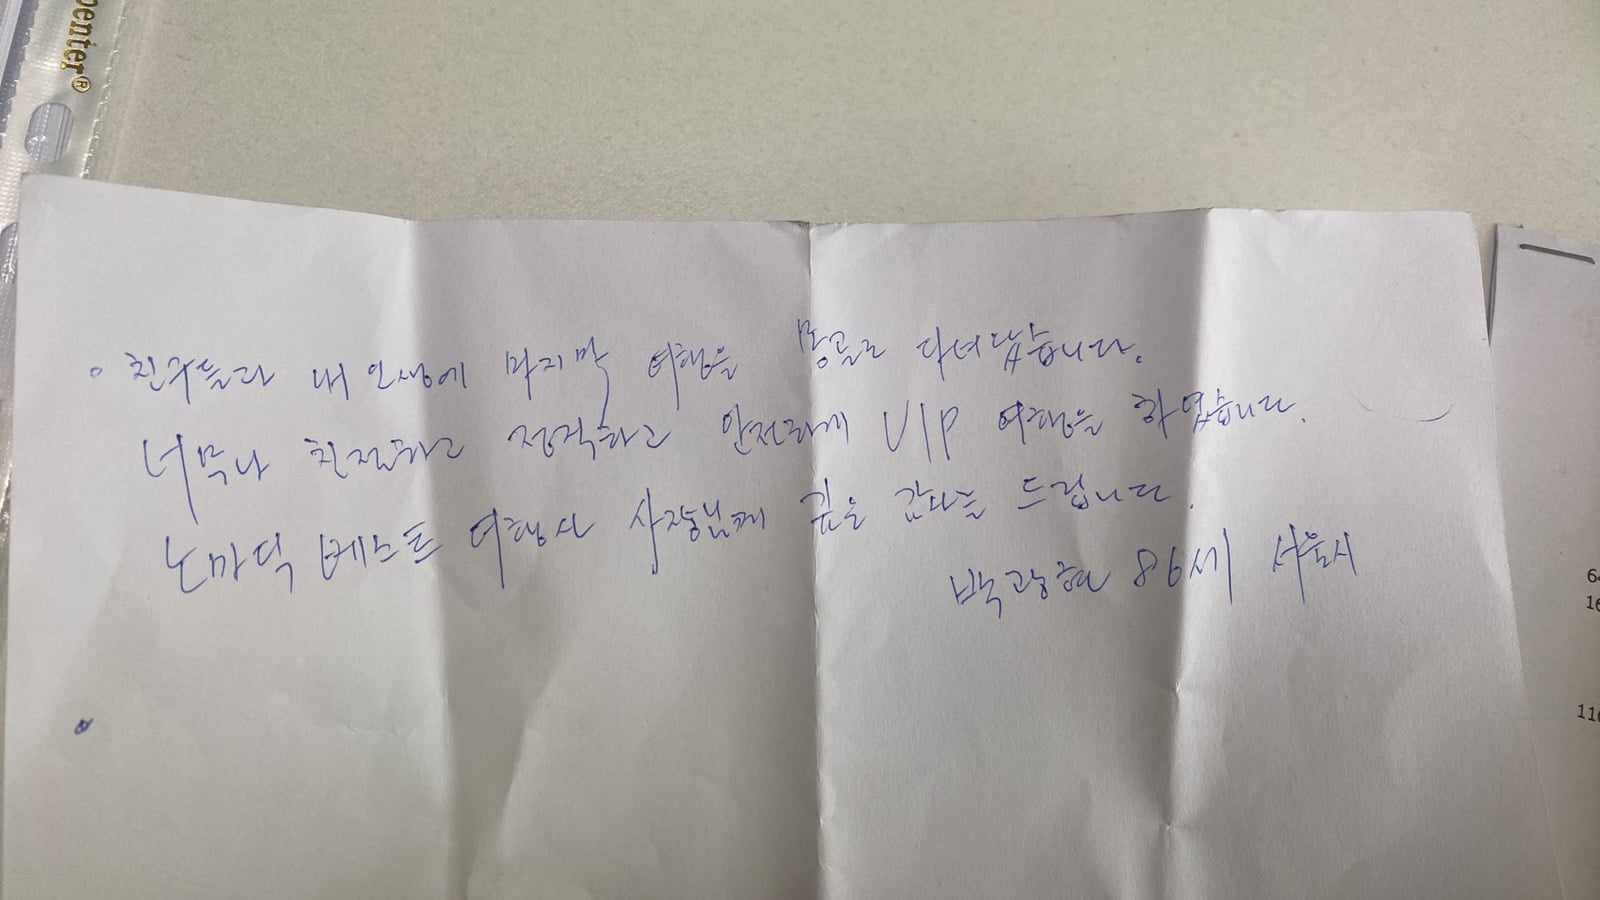 penter®
친구들과 내 인생에 마지막 여행을 몽골로 다녀갑습니다.
너무나 친절하고 정직하고 안전하게 VIP 여행을 하였습니다.
노마딕 베스트 여행사 사장님께 깊은 감사를 드립니다.
박광현 86세 서울시
64
16
116